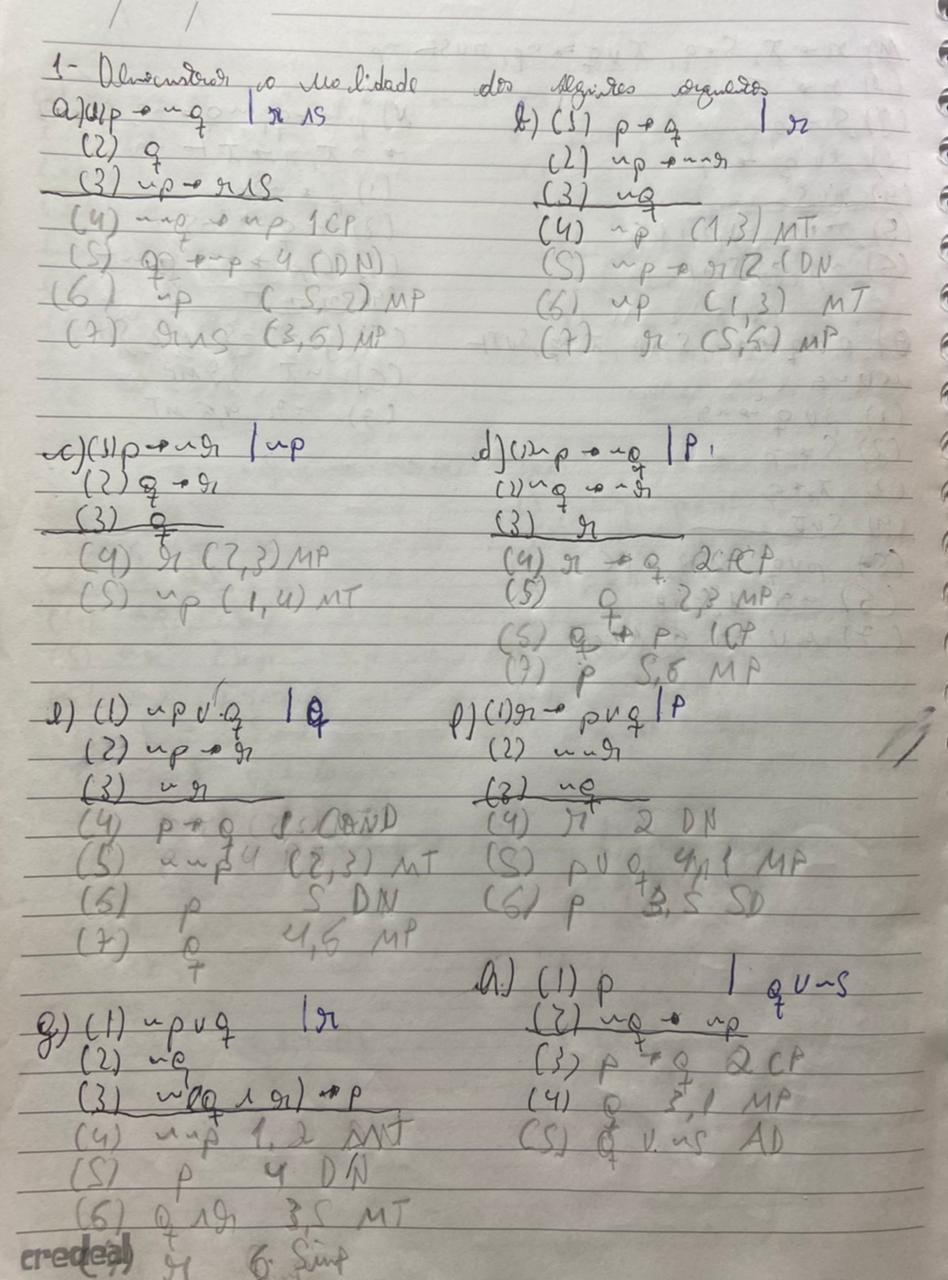 1- Demonstrar a validade dos seguintes argumentos
a) (1) p → ~q | r ∧ s
(2) q
(3) ~p → r ∧ s
(4) ~~q → ~p 1 CP
(5) q → ~p 4 (DN)
(6) ~p (5,2) MP
(7) r ∧ s (3,6) MP
b) (1) p → q | r
(2) ~p → ~~r
(3) ~q
(4) ~p (1,3) MT
(5) ~p → r 2 (DN
(6) ~p (1,3) MT
(7) r (5,6) MP
c) (1) p → ~r | ~p
(2) q → r
(3) q
(4) r (2,3) MP
(5) ~p (1,4) MT
d) (1) ~p → ~q | p
(2) ~q → ~r
(3) r
(4) r → q 2 CP
(5) q 2,3 MP
(6) q → p 1 CP
(7) p 5,6 MP
e) (1) ~p ∨ q | q
(2) ~p → r
(3) ~r
(4) p → q 1 COND
(5) ~~p (2,3) MT
(6) p 5 DN
(7) q 4,6 MP
f) (1) r → p ∨ q | p
(2) ~~r
(3) ~q
(4) r 2 DN
(5) p ∨ q 4,1 MP
(6) p 3,5 SD
g) (1) ~p ∨ q | r
(2) ~q
(3) ~(q ∧ r) → p
(4) ~~p 1,2
(5) p 4 DN
(6) q ∧ r 3,5 MT
r 6 Simp
h) (1) p | q ∨ ~s
(2) ~q → ~p
(3) p → q 2 CP
(4) q 3,1 MP
(5) q ∨ ~s AD
credeal